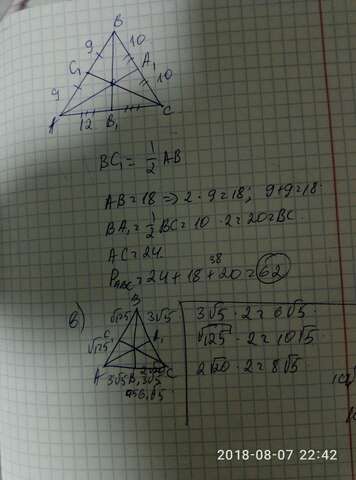 B
9 10
C₁ A₁
9 10
A 12 B₁ C
BC₁ = 1/2 AB
AB = 18 => 2 · 9 = 18; 9+9=18.
BA₁ = 1/2 BC = 10 · 2 = 20 = BC.
AC = 24.
38
P_ABC = 24 + 18 + 20 = 62
в)
B
√125 3√5
C₁ A₁
√125
A 3√5 B₁ 3√5 C
3√5 · 2 = 6√5
√125 · 2 = 10√5
2√20 · 2 = 8√5
2018-08-07 22:42